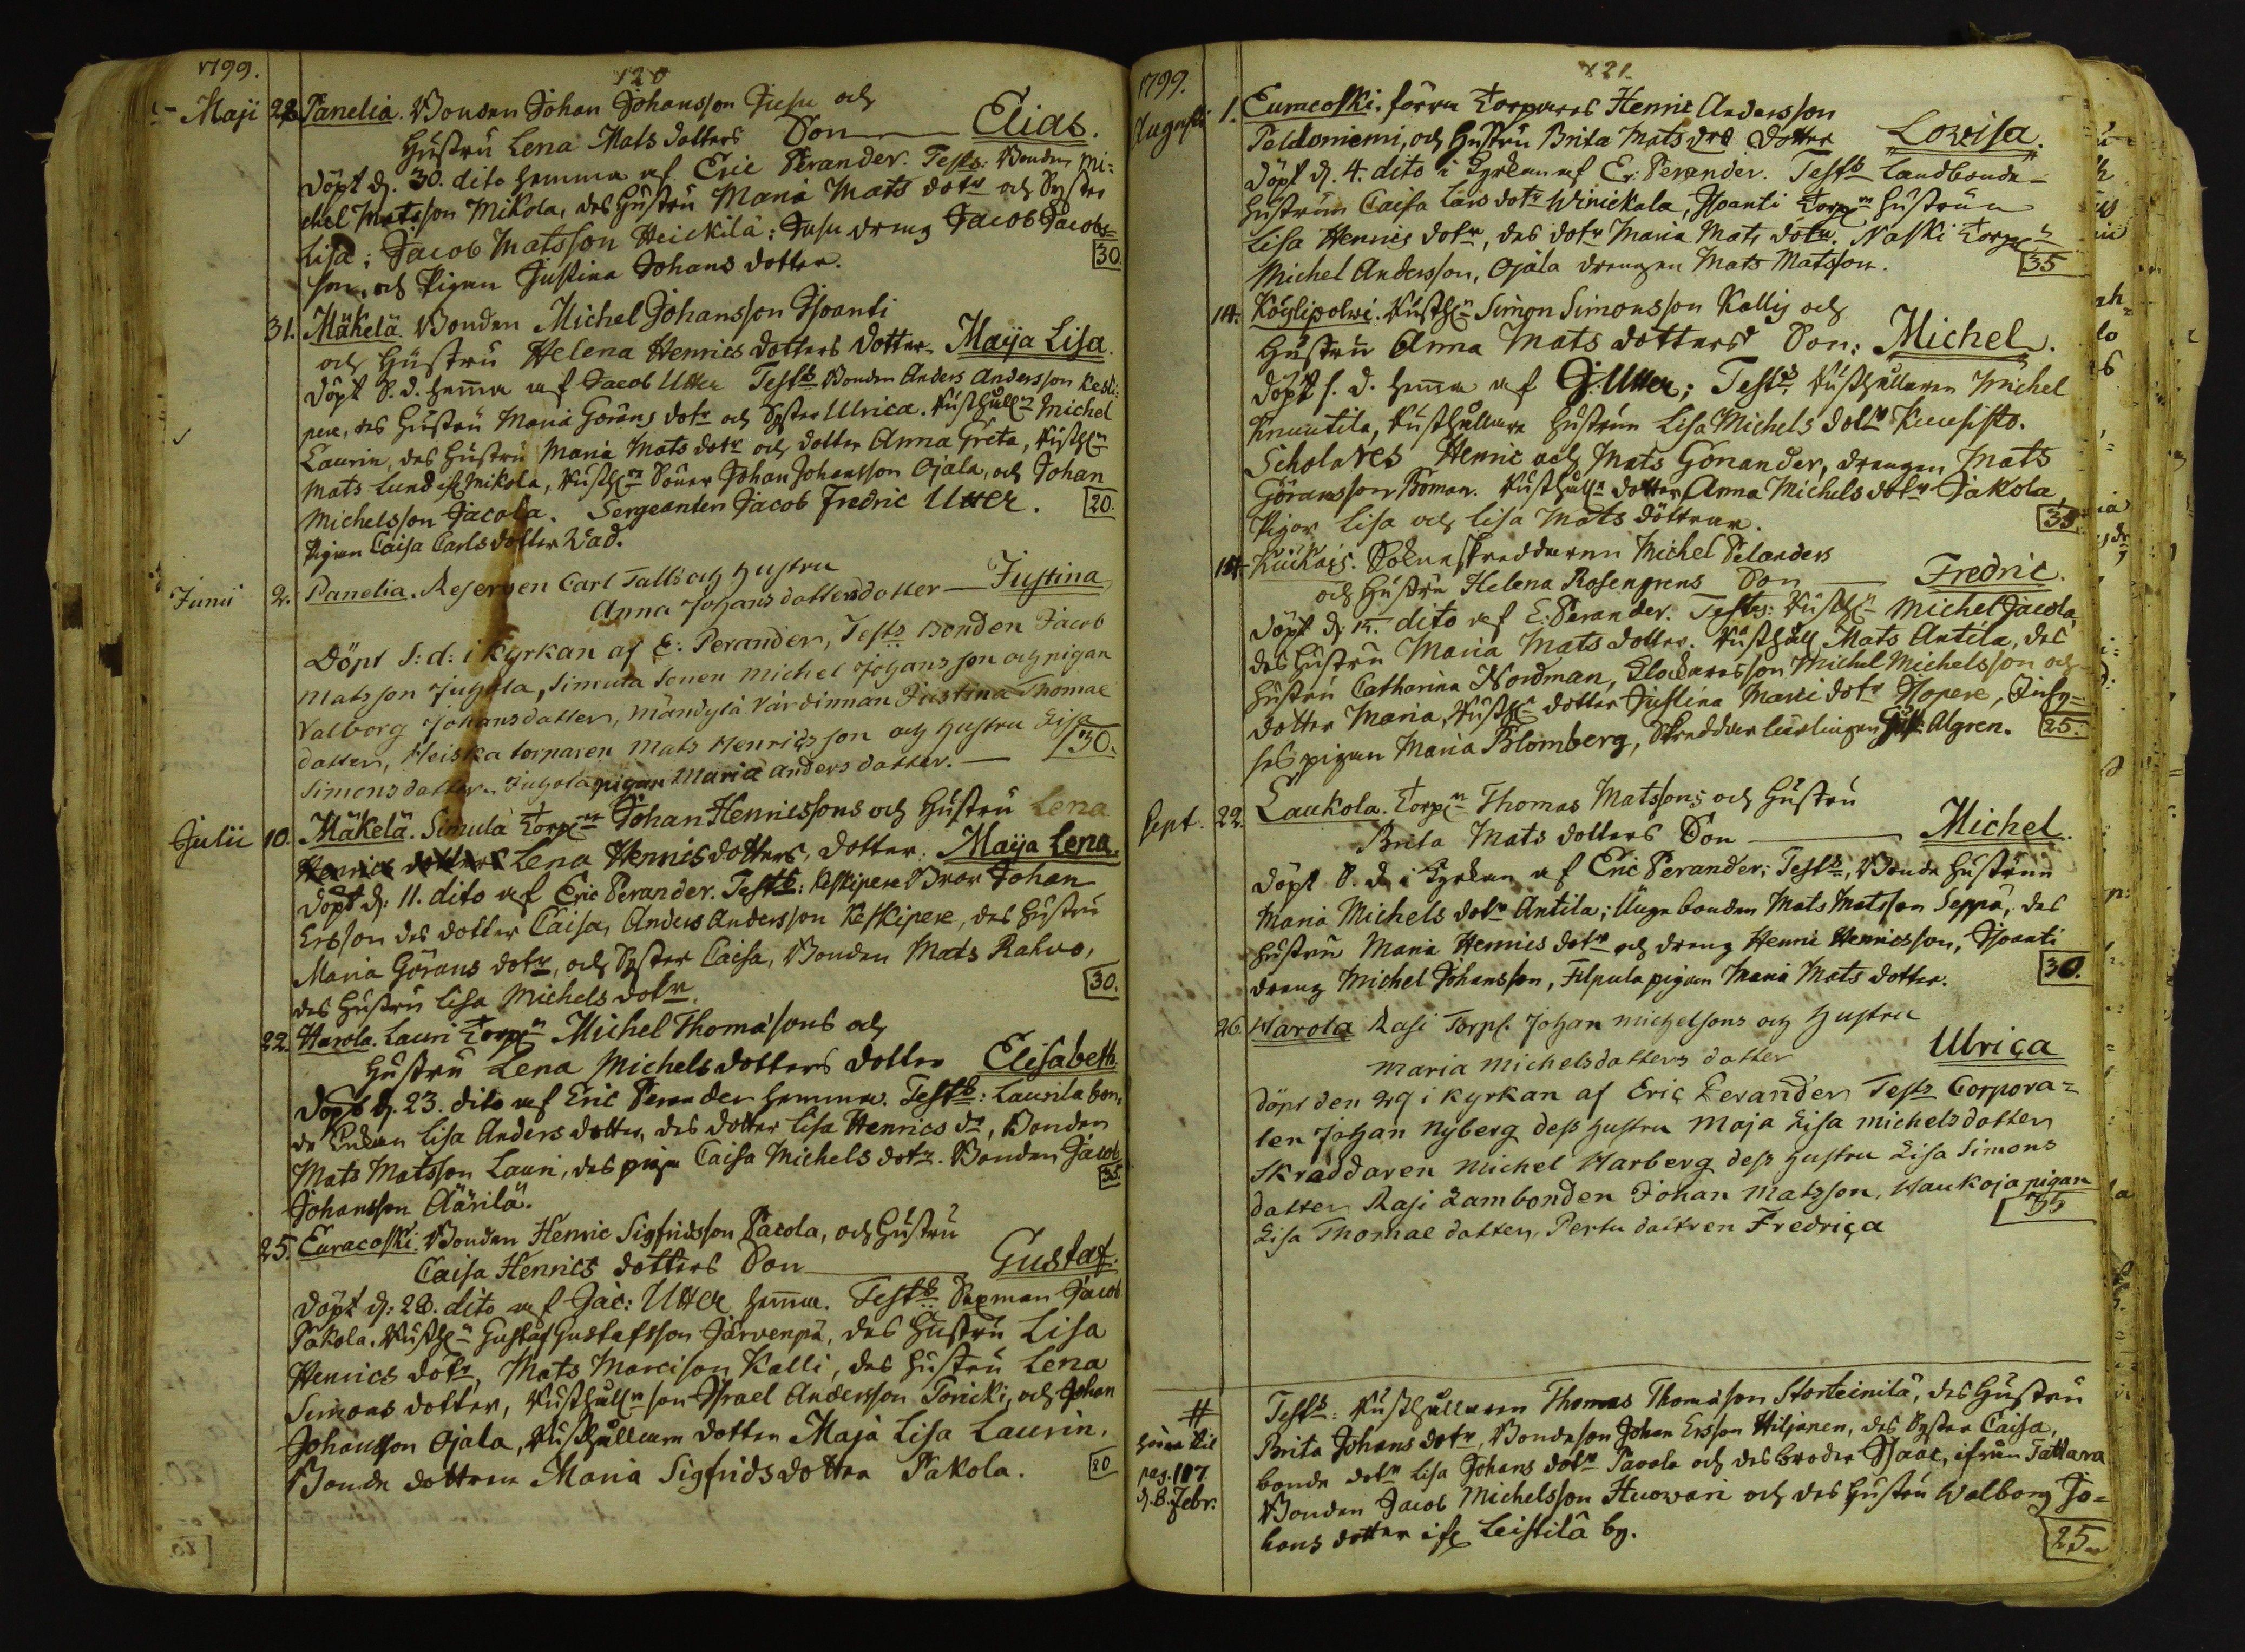 1799.
120
Maji 28. Panelia. Bonden Johan Johansson Jusu och
Hustru Lena Mats dotters Son Elias.
döpt d. 30. dito hemma af Eric Perander. Tests: Bonden Mi:
chel Matsson Mikola, des Hustru Maria Mats dotr och Syster
Lisa; Jacob Matsson Heickilä: Jusu dreng Jacob Jacobs=
son, och Pigan Justina Johans dotter. 30.
31. Mäkelä. Bonden Michel Johansson Isoanti
och Hustru Helena Henrics dotters dotter Maija Lisa.
döpt S. d. hema af Jacob Utter Tests Bonden Anders Andersson Keski:
pere, des Hustru Maria Görans dotr och Syster Ulrica. Rusthålln Michel
Laurin, des Hustru Maria Mats dotr och dotter Anna Greta,
Mats Lund Mikola, Söner Johan Johansson Ojala, och Johan
Michelsson Jacola. Sergeanten Jacob Fredric Utter. 20.
Pigan Caisa Carls dotter Wad.
Junii 2. Panelia. Reserven Carl Talls och hustru
Anna Johans dotters dotter — Justina
Döpt S: d: i kyrkan af E: Perander, Tests Bonden Jacob
Matsson Juhola, Simula Sonen Michel Johansson och pigan
Valborg Johansdotter, Mändylä värdinnan Justina Thomae
dotter, Heiska torparen Mats Henricsson och hustru Lisa
Simonsdotter. Juhola pigan Maria anders dotter. — 30.
Julii 10. Mäkelä. Simula Torpn Johan Henricssons och Hustru Lena
Henrics dotters Lena Henricsdotters, dotter. Maija Lena.
döpt d: 11. dito af Eric Perander. Tests: Keskipere Bror Johan
Ersson des dotter Caisa, Anders Andersson Keskipere, des Hustru
Maria Görans dotr, och Syster Caisa, Bonden Mats Rahvo,
des Hustru Lisa Michels dotr. 30.
22. Harola. Lauri Torpn Michel Thomasons och
Hustru Lena Michels dotters dotter Elisabeth.
döpt d. 23. dito af Eric Perander hemma. Tests: Laurila bon:
de Enkan Lisa Anders dotter, des dotter Lisa Henrics dr, Bonden
Mats Matsson Lauri, des piga Caisa Michels dotr. Bonden Jacob
Johansson Äärilä. 35.
25. Euracoski. Bonden Henric Sigfridsson Pacola, och Hustru
Caisa Henrics dotters Son Gustaf.
döpt d: 28. dito af Jac: Utter hemma. Tests Sexman Jacob
Pakola. Gustaf Gustafsson Järvenpä, des Hustru Lisa
Henrics dotr, Mats Marcison Kalli, des Hustru Lena
Simons dotter, Rusthålln son Israel Andersson Poricki, och Johan
Johansson Ojala, Rusthållarn dotter Maja Lisa Laurin,
Bonde dottren Maria Sigfrids dotter Pakola. 20
1799.
121
Augusti 1. Euracoski. förra Torparens Henric Andersson
Peldoniemi, och Hustru Brita Mats drs dotter Lowisa.
döpt d. 4. dito i Kyrkan af Er: Perander. Tests Landbonde-
hustrun Caisa Lars dotr Winickala, Isoanti Torpn Hustrun
Lisa Henrics dotr, des dotr Maria Mats dotr. Naski Torpn
Michel Andersson, Ojala drengen Mats Matsson. 35
14. Köylipolvi. Simon Simonsson Kallis och
Hustru Anna Mats dotters Son: Michel.
döpt s. d. hema af J. Utter; Tests Rusthållaren Michel
Knuutila, Rusthållare hustrun Lisa Michels dotr Kuusisto.
Scholares Henric och Mats Gonander, drengen Mats
Göransson Boman. Rusthålln dotter Anna Michels dotr Jakola,
Pigor Lisa och Lisa Mats döttrar. 35.
14. Kuikais. Sokneskreddaren Michel Selanders
och Hustru Helena Rosengrens Son — Fredric.
döpt d. 15. dito af E: Perander. Tests: Michel Jacola,
des Hustru Maria Mats dotter. Rusthåll Mats Antila, des
Hustru Catharina Nordman, Klockaresson Michel Michelsson och
dotter Maria, dotter Justina Marci dotr Isopere,
pigan Maria Blomberg, Skreddare lärlingen Algren. 25.
Sept. 22. Laukola. Torpn Thomas Matssons och Hustru
Brita Mats dotters Son — Michel.
döpt S. d. i Kyrkan af Eric Perander; Tests, Bonde hustrun
Maria Michels dotr Antila; Unge bonden Mats Matsson Seppä, des
Hustru Maria Henrics dotr och dreng Henric Henricsson, Isoanti
dreng Michel Johansson, Filpula pigan Maria Mats dotter. 30.
26. Harola Rasi Torp. Johan Michelsons och Hustru
Maria Michelsdotters dotter Ulrica
döpt den 29 i kyrkan af Eric Perander Tests Corpora=
len Johan Nyberg dess hustru Maja Lisa Michelsdotter
Skräddaren Michel Harberg dess hustru Lisa Simons
dotter Rasi Lambonden Johan Matsson, Haukoja pigan
Lisa Thomae dotter, Pertu dottren Fredrica 35
# hörer til pag. 107. d. 8. Febr:
Tests: Rusthållaren Thomas Thomasson Storteinilä, des Hustru
Brita Johans dotr, Bondeson Johan Ersson Hiljanen, des Syster Caisa,
bonde dotr Lisa Johans dotr Pavola och des broder Isaac, ifrån Tattara
Bonden Jacob Michelsson Huovari och des Hustru Walborg Jo=
hans dotter Leistilä by. 25